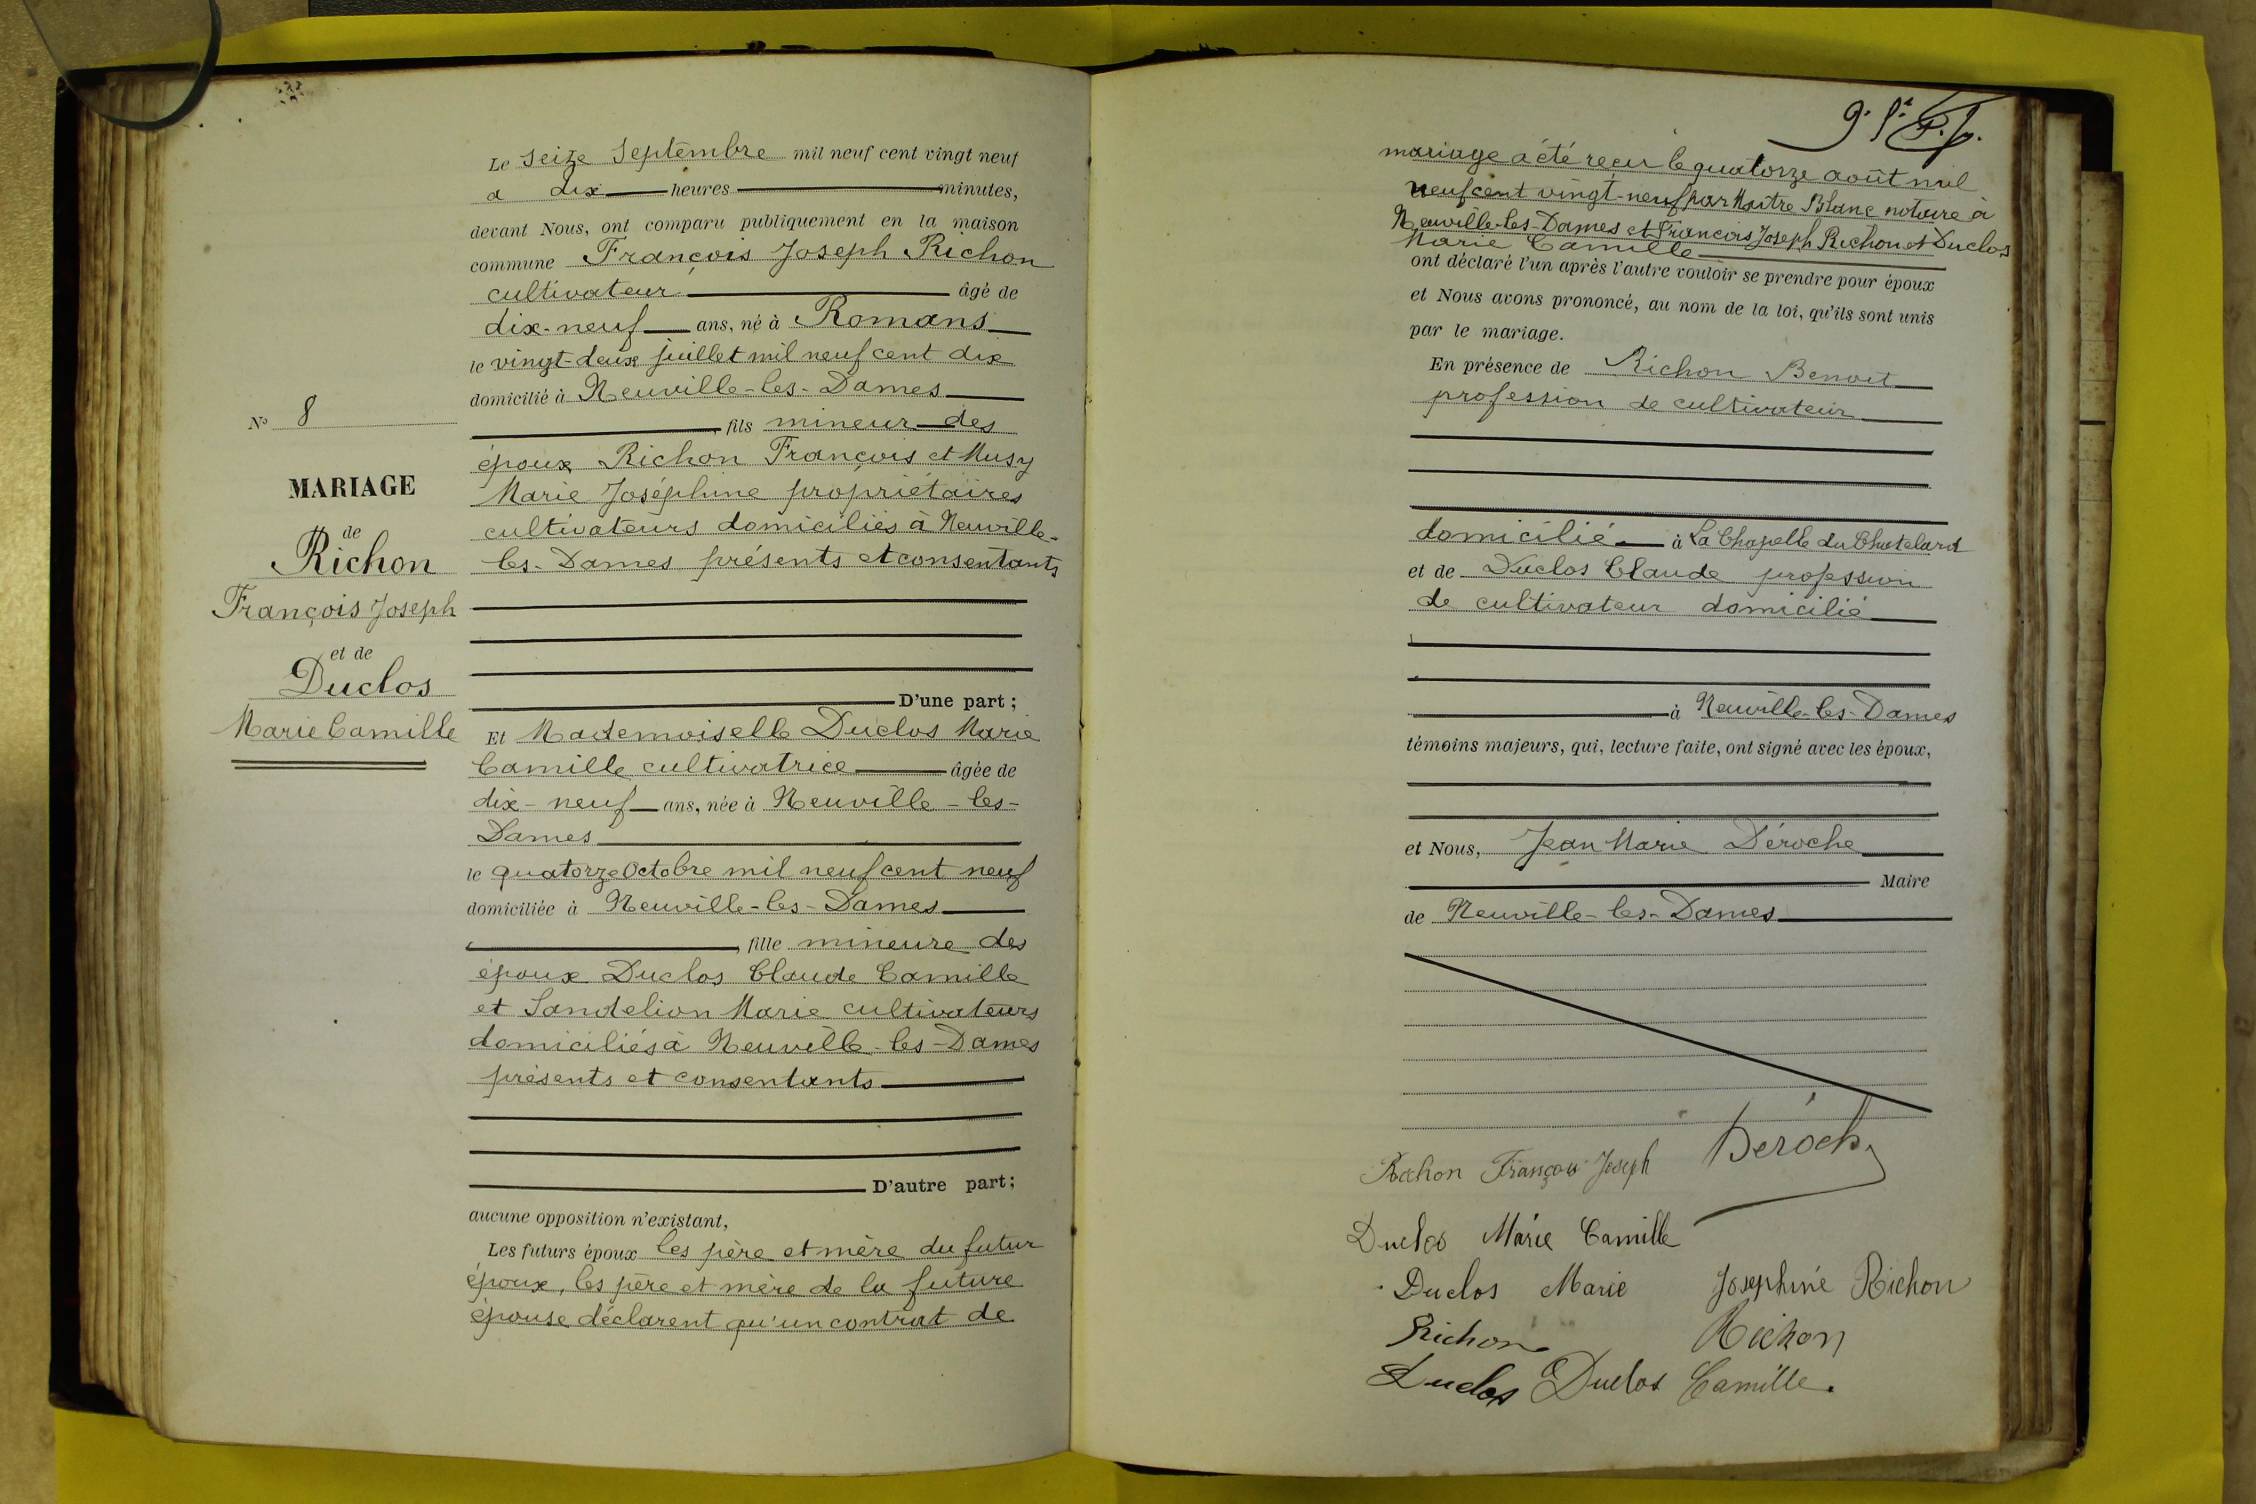 N° 8
MARIAGE
de
Richon
François Joseph
et de
Duclos
Marie Camille
Le seize Septembre mil neuf cent vingt neuf
a dix heures minutes,
devant Nous, ont comparu publiquement en la maison
commune François Joseph Richon
cultivateur âgé de
dix-neuf ans, né à Romans
le vingt-deux juillet mil neuf cent dix
domicilié à Neuville-les-Dames
, fils mineur des
époux Richon François et Musy
Marie Joséphine propriétaires
cultivateurs domiciliés à Neuville-
les-Dames présents et consentants
D'une part;
Et Mademoiselle Duclos Marie
Camille cultivatrice âgée de
dix-neuf ans, née à Neuville-les-
Dames
le quatorze Octobre mil neuf cent neuf
domiciliée à Neuville-les-Dames
, fille mineure des
époux Duclos Claude Camille
et Sandelion Marie cultivateurs
domiciliés à Neuville-les-Dames
présents et consentants
D'autre part;
aucune opposition n'existant,
Les futurs époux les père et mère du futur
époux, les père et mère de la future
épouse déclarent qu'un contrat de
mariage a été reçu le quatorze août mil
neuf cent vingt-neuf par Maître Blanc notaire à
Neuville-les-Dames et François Joseph Richon et Duclos
Marie Camille
ont déclaré l'un après l'autre vouloir se prendre pour époux
et Nous avons prononcé, au nom de la loi, qu'ils sont unis
par le mariage.
En présence de Richon Benoit
profession de cultivateur
domicilié à La Chapelle du Chatelard
et de Duclos Claude profession
de cultivateur domicilié
à Neuville-les-Dames
témoins majeurs, qui, lecture faite, ont signé avec les époux,
et Nous, Jean Marie Déroche
Maire
de Neuville-les-Dames
Richon François Joseph Déroche
Duclos Marie Camille
Duclos Marie Josephine Richon
Richon Richon
Duclos Duclos Camille.